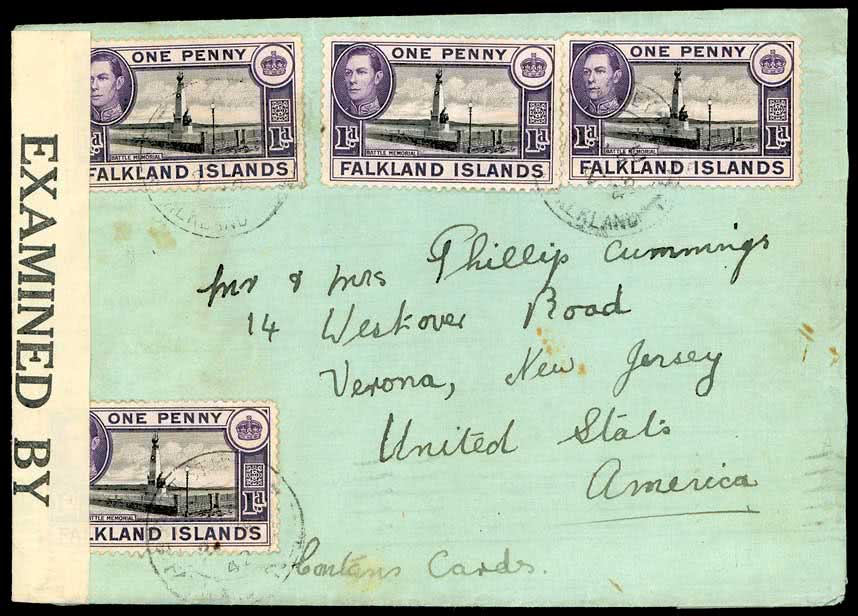 EXAMINED BY
ONE PENNY
1d
BATTLE MEMORIAL
FALKLAND ISLANDS
ONE PENNY
1d 1d
BATTLE MEMORIAL
FALKLAND ISLANDS
ONE PENNY
1d 1d
BATTLE MEMORIAL
FALKLAND ISLANDS
FALKLAND
FALKLAND
Mr & Mrs Phillip Cummings
14 Westover Road
Verona, New Jersey
United Stats
America
ONE PENNY
1d
BATTLE MEMORIAL
FALKLAND ISLANDS
Contans Cards.